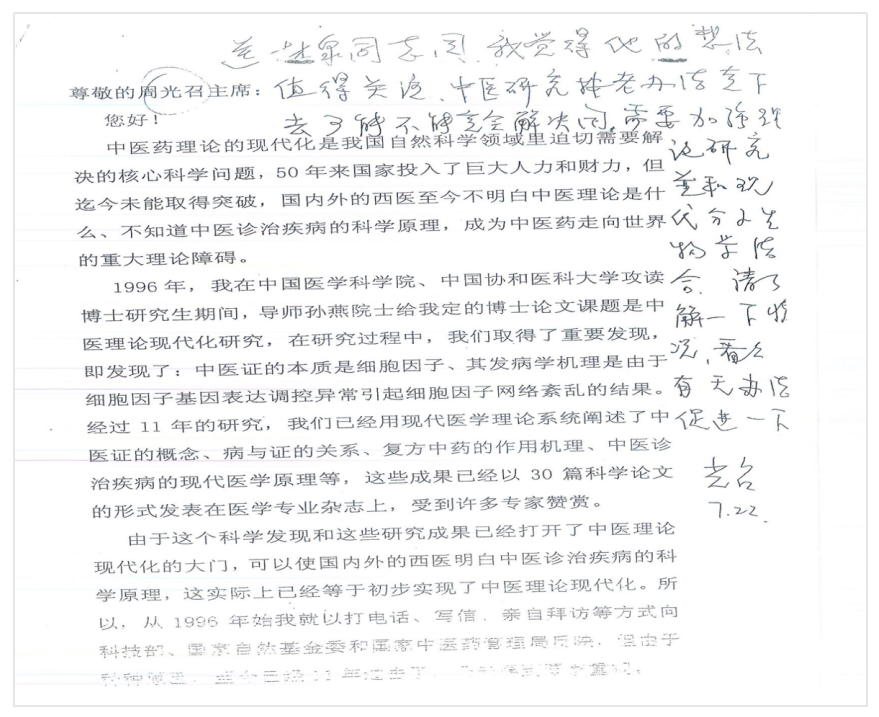 送 泉同志阅 我觉得他的想法
值得关注、中医研究按老办法走下
去了能不能完全解决问 需要加强理
论研究
并和现
代分子生
物学结
合、请了
解一下情
况,看看
有无办法
促进一下
光召
7.22.
尊敬的周光召主席:
您好!
中医药理论的现代化是我国自然科学领域里迫切需要解
决的核心科学问题,50 年来国家投入了巨大人力和财力,但
迄今未能取得突破,国内外的西医至今不明白中医理论是什
么、不知道中医诊治疾病的科学原理,成为中医药走向世界
的重大理论障碍。
1996 年,我在中国医学科学院、中国协和医科大学攻读
博士研究生期间,导师孙燕院士给我定的博士论文课题是中
医理论现代化研究,在研究过程中,我们取得了重要发现,
即发现了:中医证的本质是细胞因子、其发病学机理是由于
细胞因子基因表达调控异常引起细胞因子网络紊乱的结果。
经过 11 年的研究,我们已经用现代医学理论系统阐述了中
医证的概念、病与证的关系、复方中药的作用机理、中医诊
治疾病的现代医学原理等,这些成果已经以 30 篇科学论文
的形式发表在医学专业杂志上,受到许多专家赞赏。
由于这个科学发现和这些研究成果已经打开了中医理论
现代化的大门,可以使国内外的西医明白中医诊治疾病的科
学原理,这实际上已经等于初步实现了中医理论现代化。所
以,从 1996 年始我就以打电话、写信、亲自拜访等方式向
科技部、国家自然基金委和国家中医药管理局反映,但由于
种种原因,至今已经 11 年过去了,